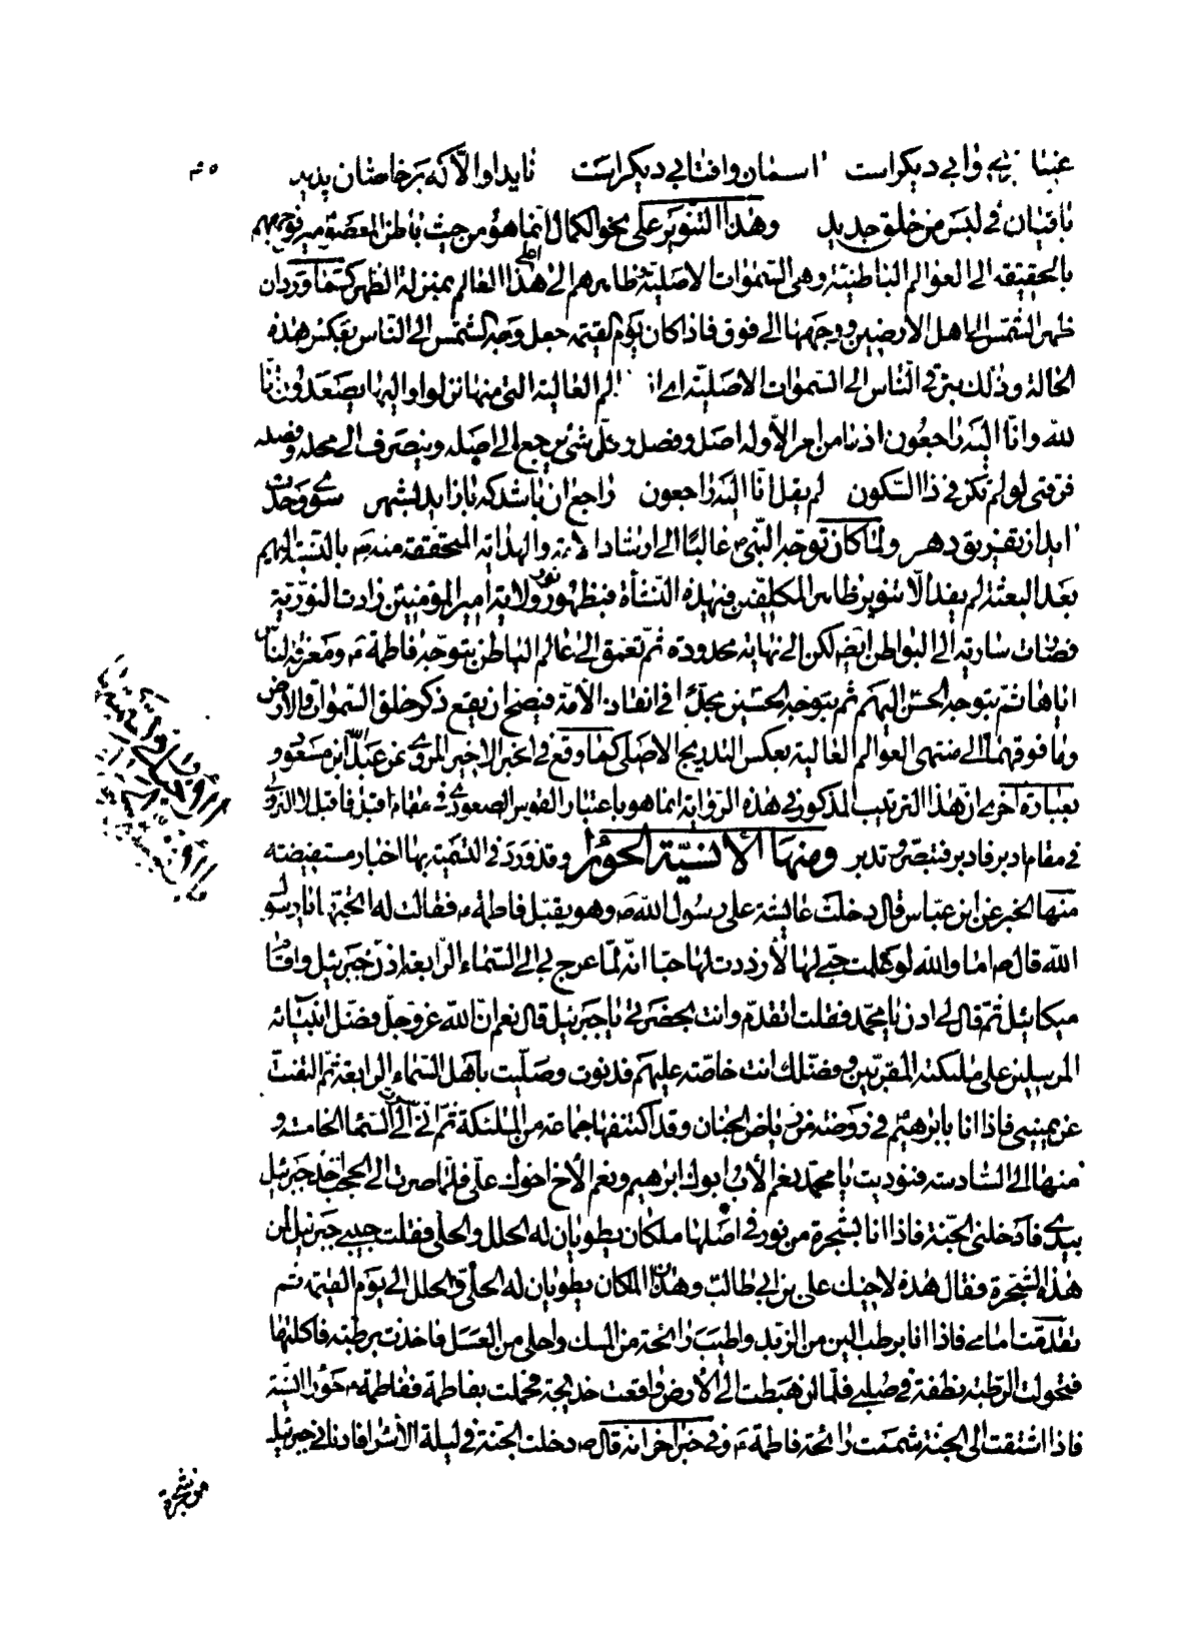 غیب را ابری وابی دیکراست اسمان وافتابی دیکراست ناید او الّا که بر خاصان پدید
باقیان فی لبس من خلق جدید وهذا التنویر علی نحو الکمال انما هو من حیث باطن العصمة
بالحقیقة الی العوالم الباطنیة وهی السموات الاصلیة وظاهرهم الی هذا العالم بمنزلة الظهر کما ورد ان
ظهر الشمس الی اهل الارضین ووجهها الی فوق فاذا کان یوم القیمة جعل وجه الشمس الی الناس بعکس هذه
الحالة وذلک الناس الی السموات الاصلیة العالیة التی منها نزلوا والیها یصعدون انّا
لله وانّا الیه راجعون اذ ما من امر الّا وله اصل وفصل وکلّ شئ یرجع الی اصله وینصرف الی محله وفصله
فرقتی لو لم تکن فی ذا السکون لم یقل انا الیه راجعون راجع ان باشد که باز اید بشهر سوی وحدت
اید از تفریق دهر ولما کان توجه النبی ص غالبا الی ارشاد الامة والهدایة المتحققة منه بالنسبة الیهم
بعد البعثة لم یفد الّا تنویر ظاهر المکلفین فی هذه النشأة فبظهور نور ولایة امیر المؤمنین زادت النوریة
فصارت ساریة الی البواطن ایضا لکن الی نهایة محدودة ثم تعمق الی عالم الباطن بتوجه فاطمة ع ومعرفة الناس
ایاها ثم بتوجه الحسن الیهم ثم بتوجه الحسین مجدّا فی انقاذ الامة فیصح ان یقع ذکر خلق السموات والارض
وما فوقهما الی منتهی العوالم العالیة بعکس التدریج الاصلی کما وقع فی الخبر الاخیر المروی عن عبد الله ابن مسعود
بعبارة اخری ان هذا الترتیب المذکور فی هذه الروایة انما هو باعتبار القوس الصعودی فی مقام اقبل فاقبل لا النزولی
فی مقام ادبر فادبر فتبصر وتدبر ومنها الانسیّة الحوراء وقد ورد فی التسمیة بها اخبار مستفیضة
منها الخبر عن ابن عباس قال دخلت عایشة علی رسول الله ص وهو یقبل فاطمة ع فقالت له اتحبها یا رسول
الله قال ص اما والله لو علمت حبی لها لازددت لها حبا انه لما عرج بی الی السماء الرابعة اذن جبرئیل واقام
میکائیل ثم قال لی ادن یا محمد فقلت اتقدم وانت بحضرتی یا جبرئیل قال نعم ان الله عز وجل فضل انبیائه
المرسلین علی ملئکته المقربین وفضلک انت خاصة علیهم فدنوت وصلیت باهل السماء الرابعة ثم التفت
عن یمینی فاذا انا بابرهیم فی روضة من ریاض الجنان وقد اکتنفها جماعة من الملئکة ثم انی الی السماء الخامسة و
منها الی السادسة فنودیت یا محمد نعم الاب ابوک ابرهیم ونعم الاخ اخوک علی فلما صرت الی الحجب اخذ جبرئیل
بیدی فادخلنی الجنة فاذا انا بشجرة من نور فی اصلها ملکان یطویان له الحلل والحلی فقلت حبیبی جبرئیل لمن
هذه الشجرة فقال هذه لاخیک علی بن ابی طالب وهذان الملکان یطویان له الحلی والحلل الی یوم القیمة ثم
تقدمت امامی فاذا انا برطب الین من الزبد واطیب رائحة من المسک واحلی من العسل فاخذت رطبة فاکلتها
فتحولت الرطبة نطفة فی صلبی فلما ان هبطت الی الارض واقعت خدیجة فحملت بفاطمة ففاطمة ع حوراء انسیة
فاذا اشتقت الی الجنة شممت رائحة فاطمة ع وفی خبر اخر انه قال ص دخلت الجنة فی لیلة الاسراء فادنانی جبرئیل
من شجرة